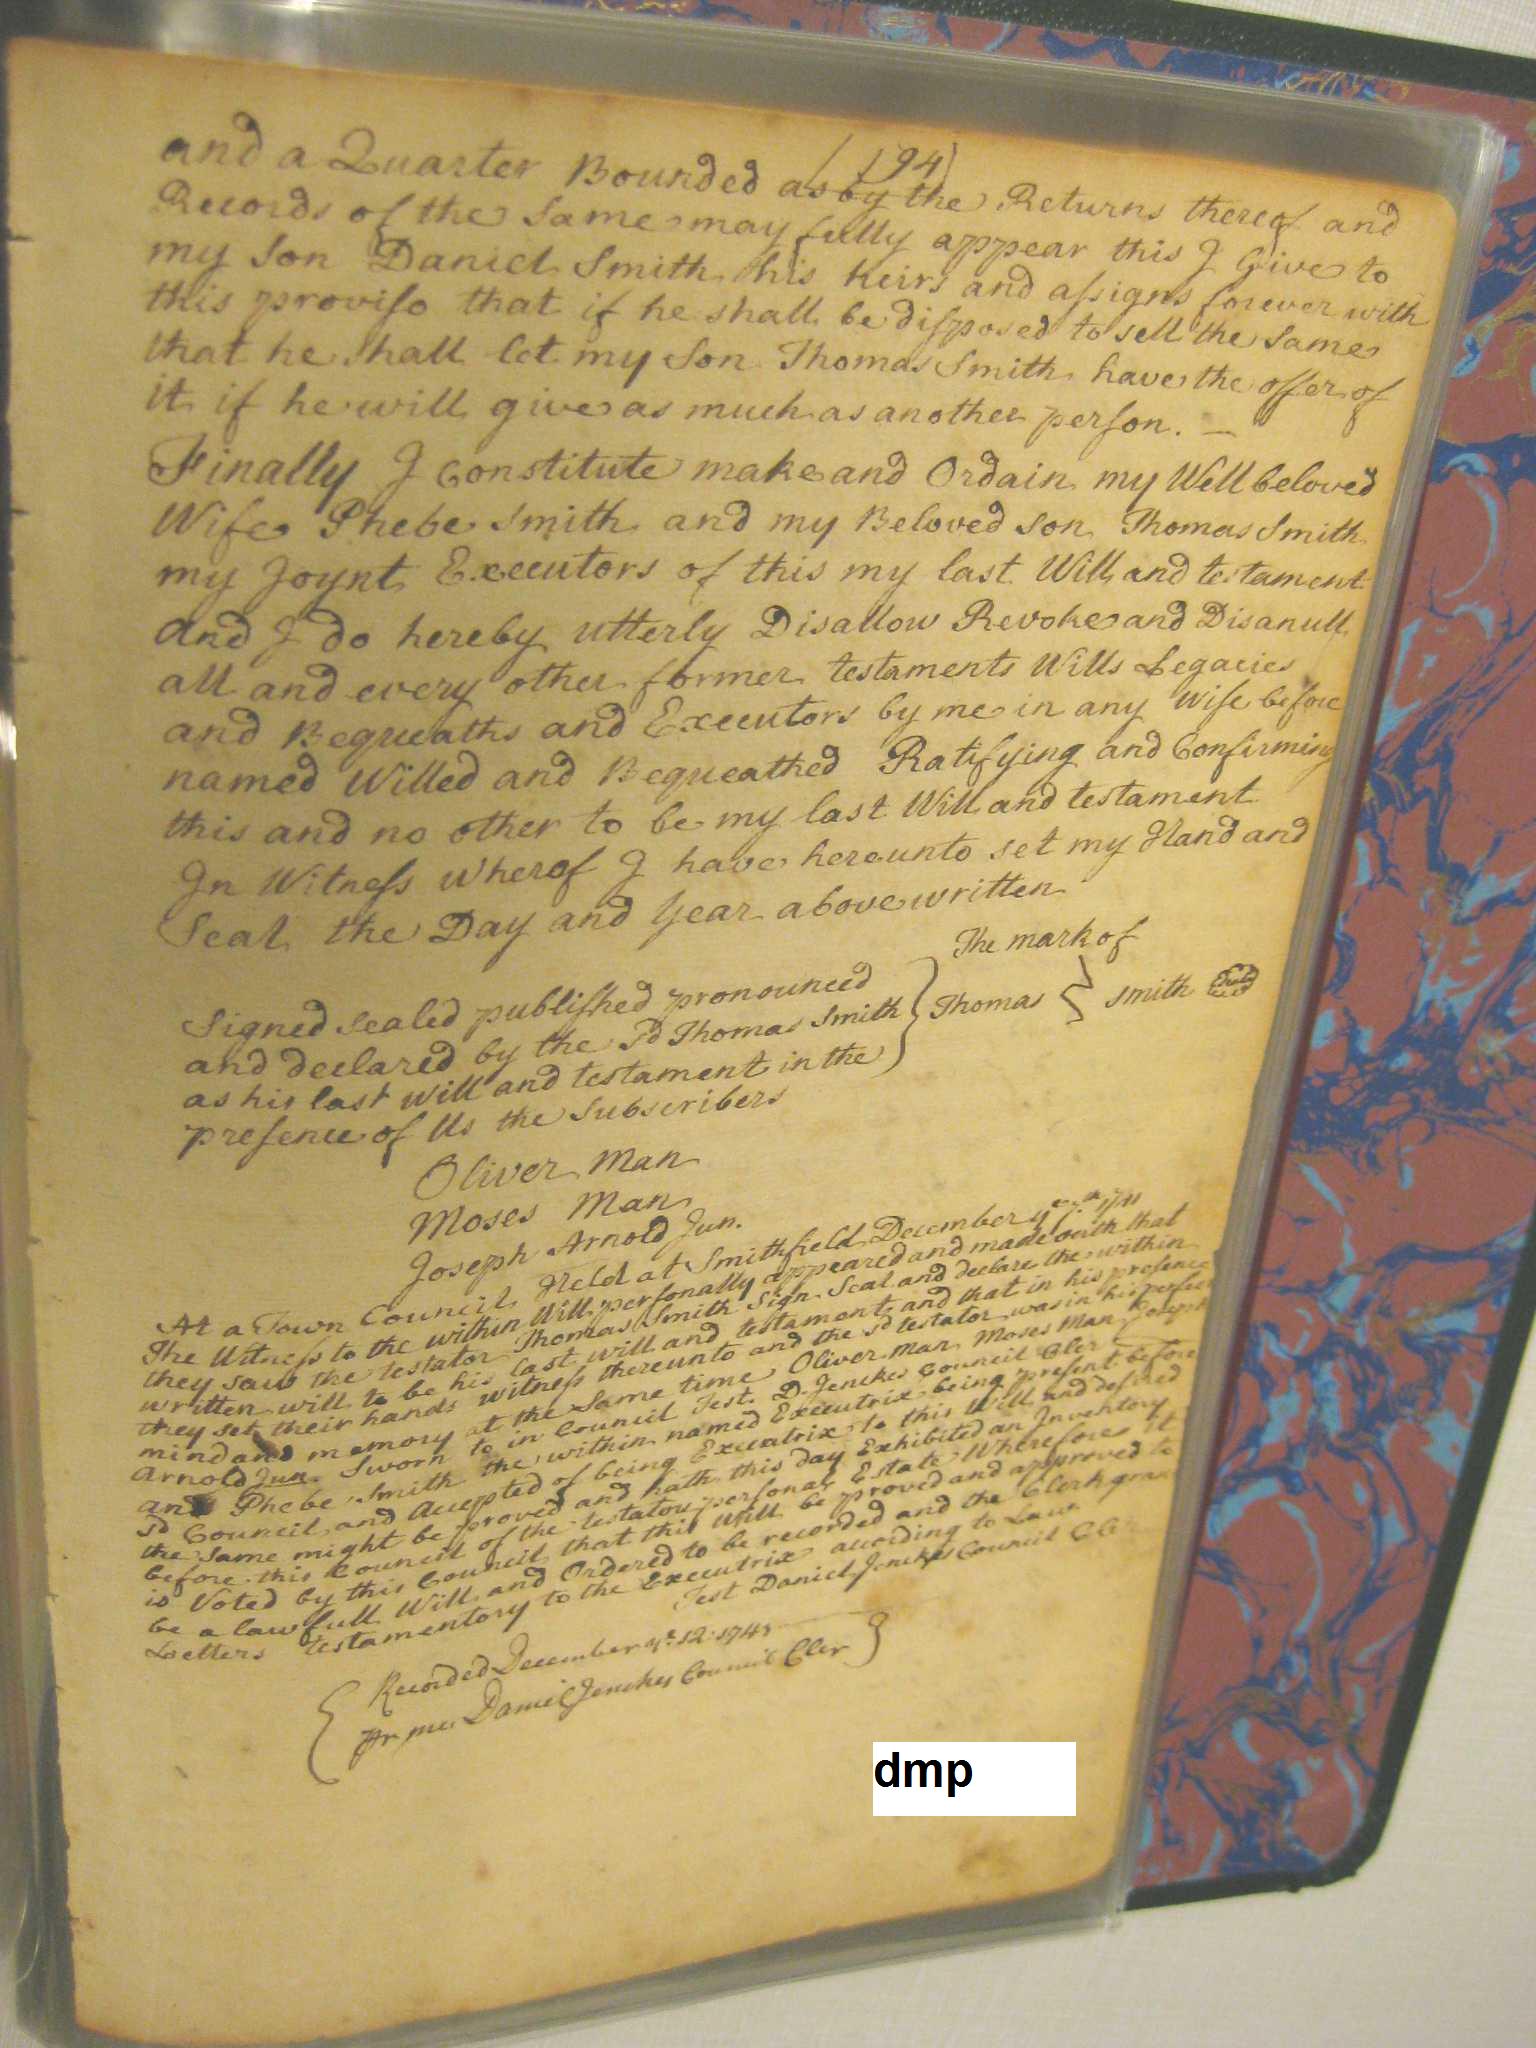 (194)
and a Quarter Bounded as by the Returns thereof and
Records of the Same may fully appear this I Give to
my Son Daniel Smith his heirs and assigns forever with
this proviso that if he shall be disposed to sell the Same
that he shall let my Son Thomas Smith have the offer of
it if he will give as much as another person. —
Finally I Constitute make and Ordain my Well beloved
Wife Phebe Smith and my Beloved Son Thomas Smith
my Joynt Executors of this my last Will and testament
and I do hereby utterly Disallow Revoke and Disanull
all and every other former testaments Wills Legacies
and Bequeaths and Executors by me in any Wise before
named Willed and Bequeathed Ratifying and Confirming
this and no other to be my last Will and testament
In Witness Wherof I have hereunto set my Hand and
Seal the Day and Year above written
The mark of
Thomas Smith Seal
Signed Sealed published pronounced
and declared by the Sd Thomas Smith
as his last will and testament in the
presence of Us the Subscribers
Oliver Man
Moses Man
Joseph Arnold Jun.
At a Town Council Held at Smithfield December ye 7th 1741
The Witness to the within Will personally appeared and made oath that
they saw the testator Thomas Smith Sign Seal and declare the within
written will to be his last will and testament and that in his presence
they set their hands witness thereunto and the sd testator was in his perfect
mind and memory at the Same time Oliver Man Moses Man Joseph
Arnold Jun. Sworn to in Council Test. D. Jenckes Council Cler
and Phebe Smith the within named Executrix being present before
Sd Council and Accepted of being Executrix to this Will and desired
the Same might be proved and hath this day Exhibited an Inventory
before this Council of the testators personal Estate Wherefore it
is Voted by this Council that this Will be proved and approved to
be a lawfull Will and Ordered to be recorded and the Clerk grant
Letters testamentory to the Executrix according to Law
Test Daniel Jenckes Council Cler
Recorded December ye 12 1741
pr me Daniel Jenckes Council Cler
dmp